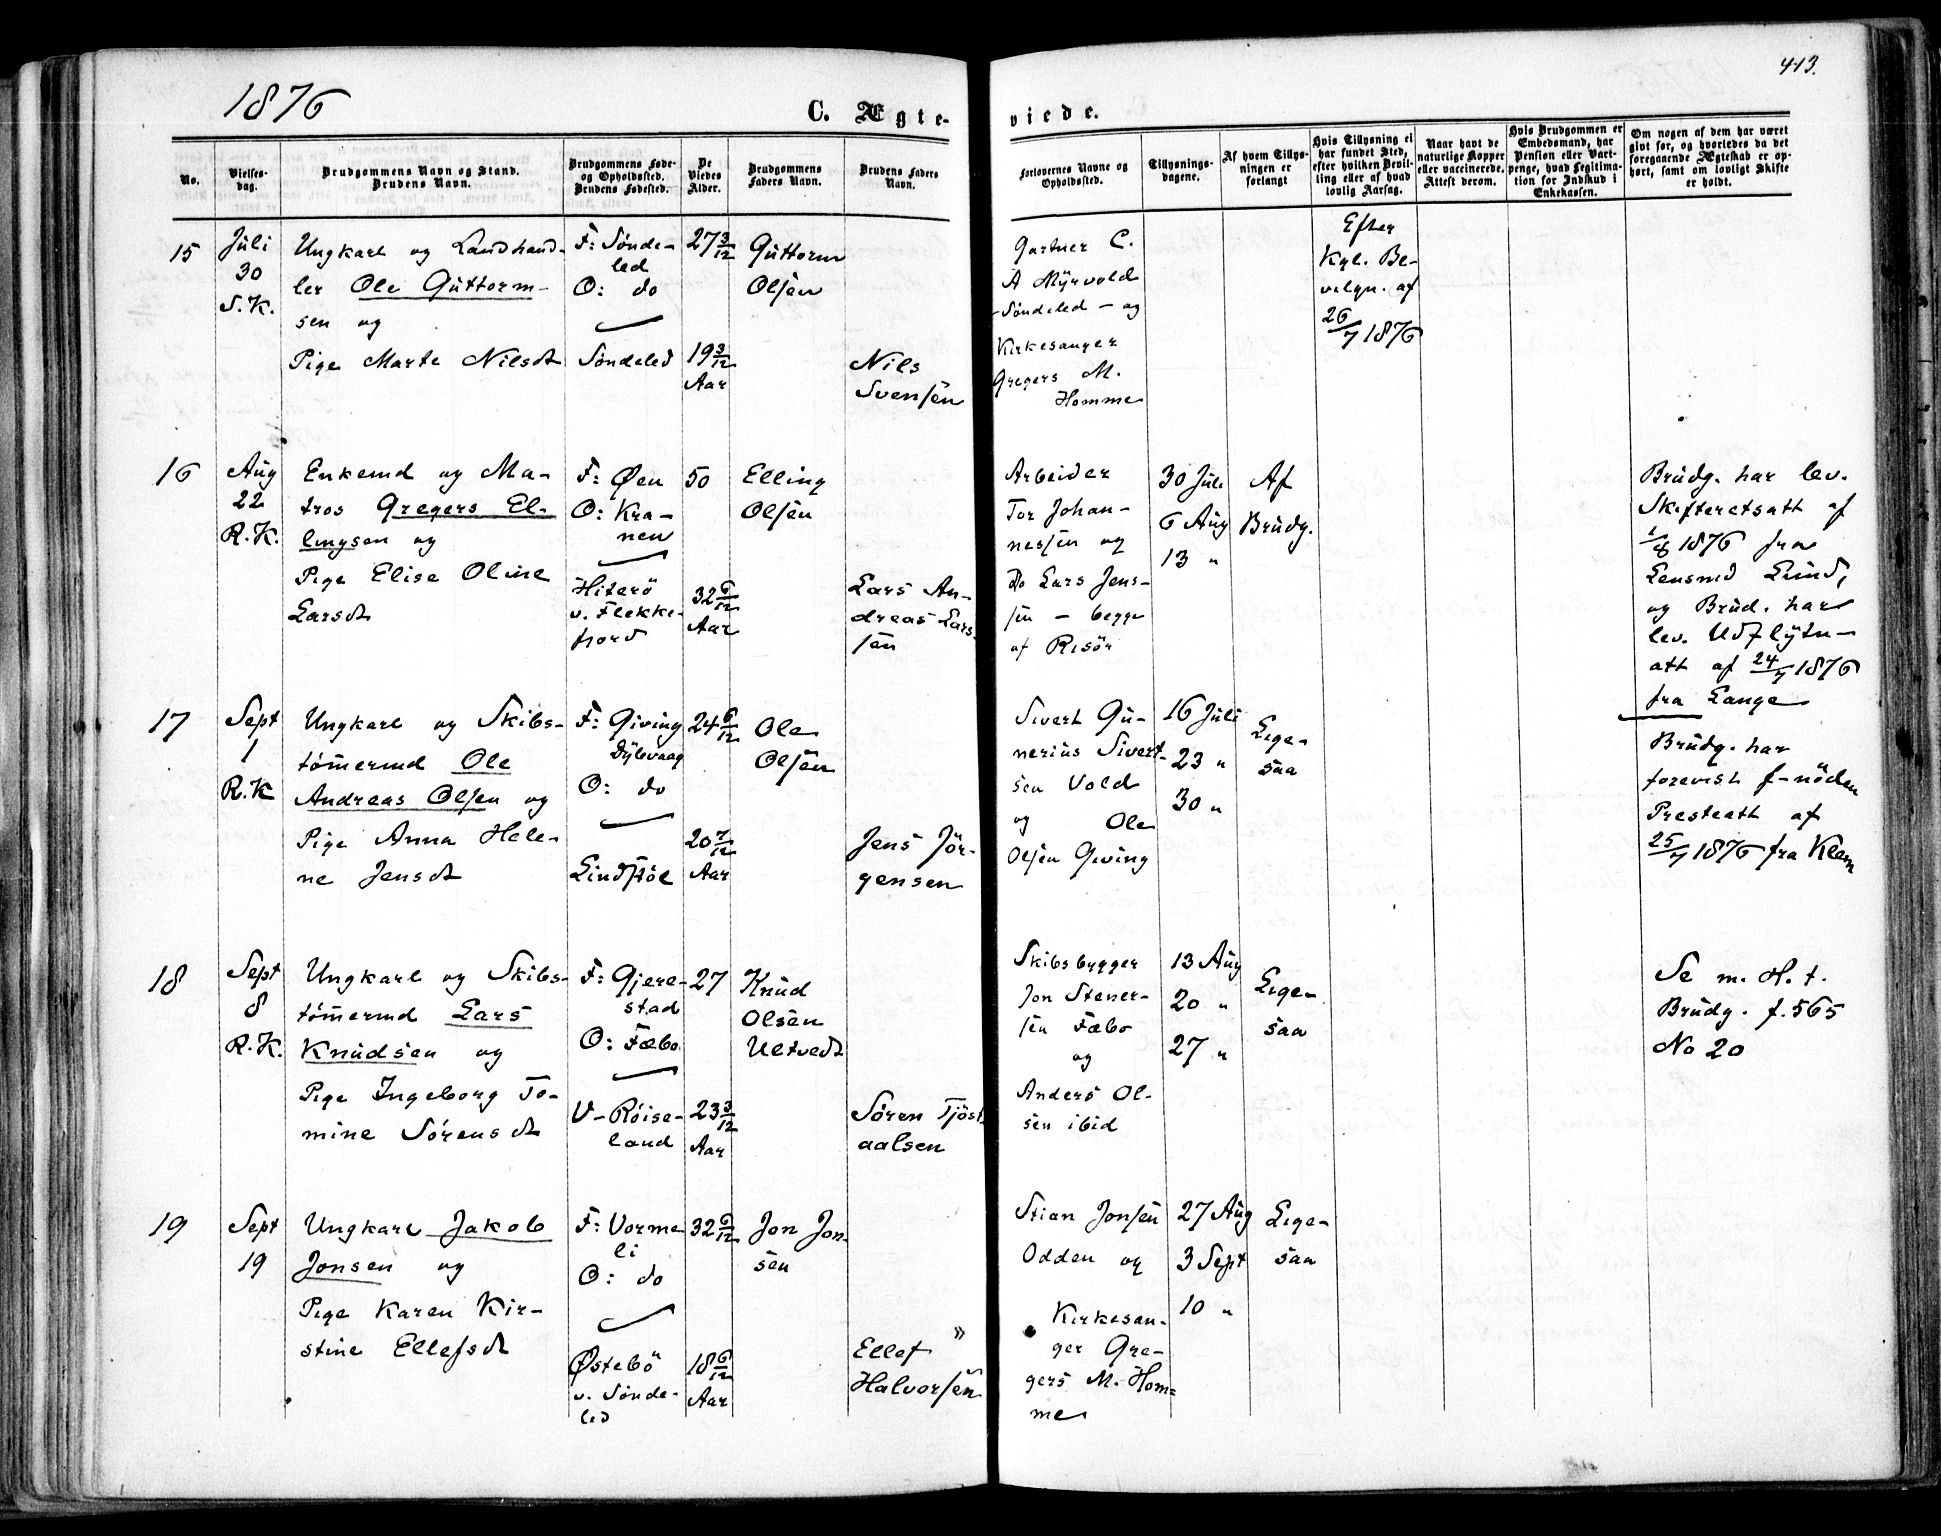 1876
413.
C. Ægte-
viede.
No.
Vielses-
dag.
Brudgommens Navn og Stand.
Brudens Navn.
Brudgommens Føde-
og Opholdssted.
Brudens Fødested.
De
Viedes
Alder.
Brudgommens
Faders Navn.
Brudens Faders
Navn.
Forlovernes Navne og
Opholdssted.
Tillysnings-
dagene.
Af hvem Tillys-
ningen er
forlangt
Hvis Tillysning ei
har fundet Sted,
efter hvilken Bevil-
ling eller af hvad
lovlig Aarsag.
Naar havt de
naturlige Kopper
eller vaccinerede.
Attest derom.
Hvis Brudgommen er
Embedsmand, har
Pension eller Vart-
penge, hvad Legitima-
tion for Indskud i
Enkekassen.
Om nogen af dem har været
givt før, og hvorledes da det
foregaaende Ægteskab er op-
hørt, samt om lovligt Skifte
er holdt.
15
Juli
30
S.K.
Ungkarl og Landhand-
ler Ole Guttorm-
sen og
Pige Marte Nilsdt
F: Sønde-
led
O: do
Søndeled
27 3/12
19 3/12
Aar
Guttorm
Olsen
Nils
Svensen
Gartner C.
A Myrvold
Søndeled - og
Kirkesanger
Gregers M.
Homme
Efter
Kgl. Be-
vilgn. af
26/7 1876
16
Aug
22
R.K.
Enkemd og Ma-
tros Gregers El-
lingsen og
Pige Elise Oline
Larsdt
F: Øen
O: Kra-
nen
Hiterö
v. Flekke-
fjord
50
32 6/12
Aar
Elling
Olsen
Lars An-
dreas Lars-
sen
Arbeider
Tor Johan-
nessen og
Do Lars Jens-
sen - begge
af Risör
30 Juli
6 Aug
13 "
Af
Brudg.
Brudg. har lev.
Skifteretsatt af
1/8 1876 fra
Lensmd Lund,
og Brud. har
lev. Udflytn-
att af 24/7 1876
fra Lange
17
Sept
1
R.K
Ungkarl og Skibs-
tömermd Ole
Andreas Olsen og
Pige Anna Hele-
ne Jensdt
F: Giving
Dybvaag
O: do
Lindstöl
24 6/12
20 7/12
Aar
Ole
Olsen
Jens Jör-
gensen
Sivert Gu-
nerius Sivert-
sen Vold
og Ole
Olsen Giving
16 Juli
23 "
30 "
Lige-
saa
Brudg. har
forevist f-nöden
Presteatt af
25/7 1876 fra Klem
18
Sept
8
R.K.
Ungkarl og Skibs-
tömermd Lars
Knudsen og
Pige Ingeborg To-
mine Sörensdt
F: Gjere-
stad
O: Fæbo
V- Röise-
land
27
23 3/12
Aar
Knud
Olsen
Ultvedt
Sören Tjöst-
aalsen
Skibsbygger
Jon Stener-
sen Fæbo
og
Anders Ol-
sen ibid
13 Aug
20 "
27 "
Lige-
saa
Se m. H. t.
Brudg. f. 565
No 20
19
Sept
19
Ungkarl Jakob
Jonsen og
Pige Karen Kir-
stine Ellefsdt
F: Vorme
li
O: do
Østebö
v. Sönde-
led
32 6/12
18 6/12
Aar
Jon Jon-
sen
"
Ellef
Halvorsen
Stian Jonsen
Odden og
Kirkesan-
ger Gre-
gers M. Hom-
me
27 Aug
3 Sept
10 "
Lige-
saa